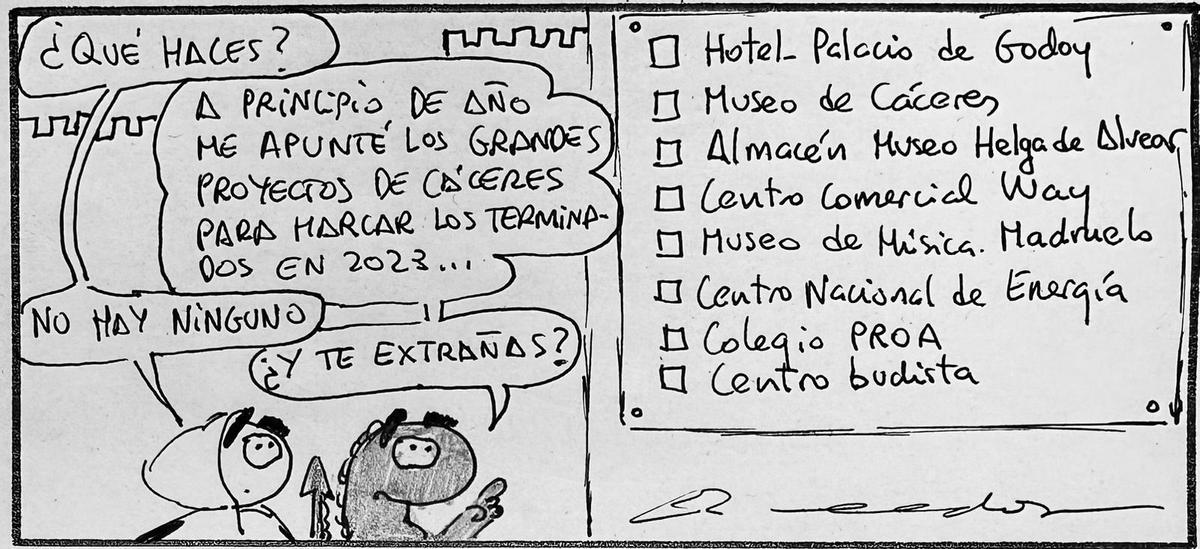 ¿QUÉ HACES?
A PRINCIPIO DE AÑO
ME APUNTÉ LOS GRANDES
PROYECTOS DE CÁCERES
PARA MARCAR LOS TERMINA-
DOS EN 2023...
NO HAY NINGUNO
¿Y TE EXTRAÑAS?
Hotel Palacio de Godoy
Museo de Cáceres
Almacén Museo Helga de Alvear
Centro Comercial Way
Museo de Música. Madruelo
Centro Nacional de Energía
Colegio PROA
Centro budista